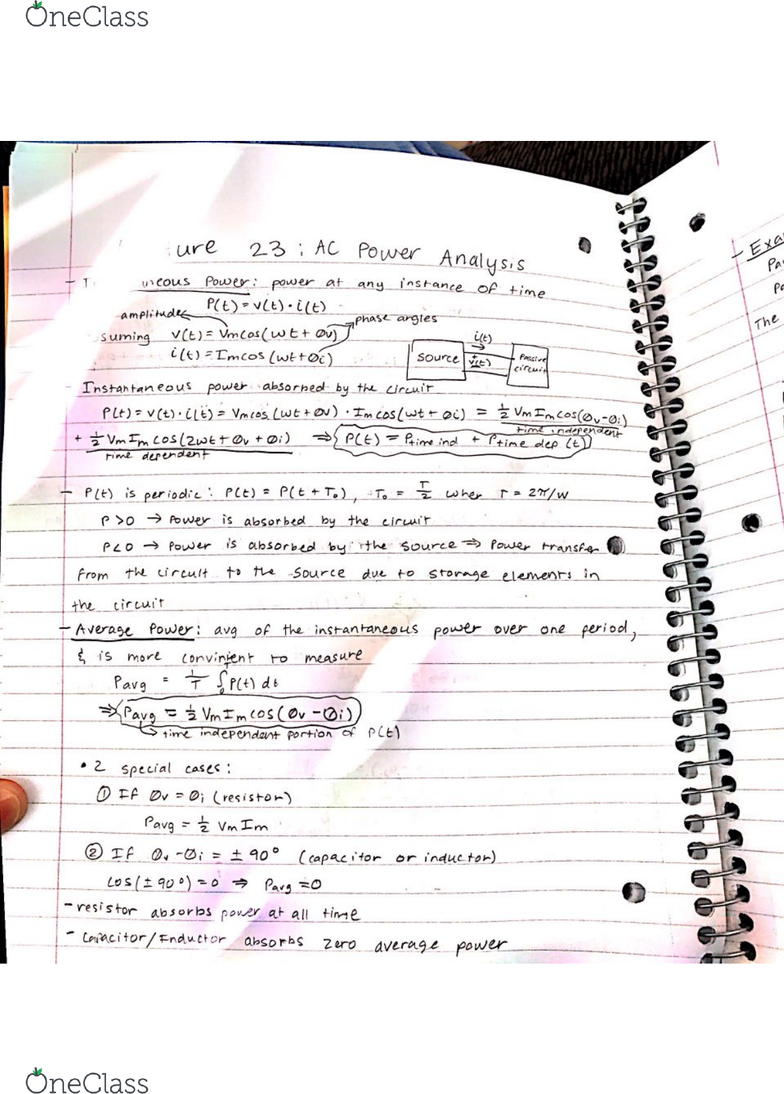 OneClass
ure 23 : AC Power Analysis
neous Power: power at any instance of time
P(t) = v(t) · i(t)
amplitude
phase angles
suming v(t) = Vmcos(wt + Øv)
i(t) = Imcos(wt + Øi)
i(t)
source
v(t)
Passive
circuit
- Instantaneous power absorbed by the circuit
P(t) = v(t) · i(t) = Vmcos(wt + Øv) · Imcos(wt + Øi) = 1/2 VmImcos(Øv - Øi)
time independent
+ 1/2 VmImcos(2wt + Øv + Øi) ⇒ P(t) = Ptime ind + Ptime dep (t)
time dependent
- P(t) is periodic : P(t) = P(t + To), To = T/2 wher T = 2π/w
P > 0 → Power is absorbed by the circuit
P < 0 → Power is absorbed by the source ⇒ Power transfer
from the circuit to the source due to storage elements in
the circuit
- Average Power : avg of the instantaneous power over one period,
& is more convinient to measure
Pavg = 1/T ∫ P(t) dt
⇒ Pavg = 1/2 VmImcos(Øv - Øi)
↳ time independent portion of P(t)
• 2 special cases :
① If Øv = Øi (resistor)
Pavg = 1/2 VmIm
② If Øv - Øi = ± 90° (capacitor or inductor)
cos(± 90°) = 0 ⇒ Pavg = 0
- resistor absorbs power at all time
- Capacitor/Inductor absorbs zero average power
- Exa
Pa
Po
The
OneClass